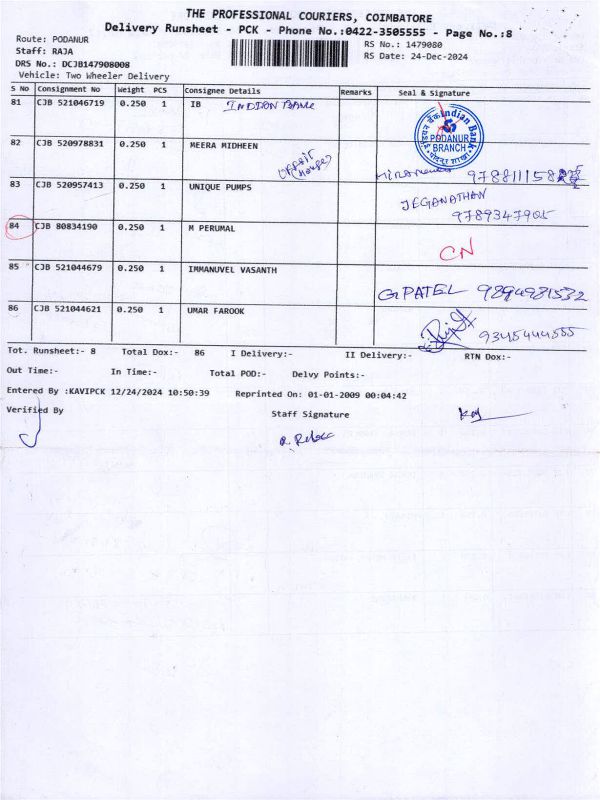 THE PROFESSIONAL COURIERS, COIMBATORE
Delivery Runsheet - PCK - Phone No.:0422-3505555 - Page No.:8
Route: PODANUR
RS No.: 1479080
Staff: RAJA
RS Date: 24-Dec-2024
DRS No.: DCJB147908008
Vehicle: Two Wheeler Delivery
S No Consignment No Weight PCS Consignee Details Remarks Seal & Signature
81 CJB 521046719 0.250 1 IB INDION BANK
Indian Bank
PODANUR
BRANCH
82 CJB 520978831 0.250 1 MEERA MIDHEEN
83 CJB 520957413 0.250 1 UNIQUE PUMPS JEGANATHAN
9789347905
84 CJB 80834190 0.250 1 M PERUMAL CN
85 CJB 521044679 0.250 1 IMMANUVEL VASANTH G.PATEL 9894981532
86 CJB 521044621 0.250 1 UMAR FAROOK 9345444555
Tot. Runsheet:- 8 Total Dox:- 86 I Delivery:- II Delivery:- RTN Dox:-
Out Time:- In Time:- Total POD:- Delvy Points:-
Entered By :KAVIPCK 12/24/2024 10:50:39 Reprinted On: 01-01-2009 00:04:42
Verified By Staff Signature